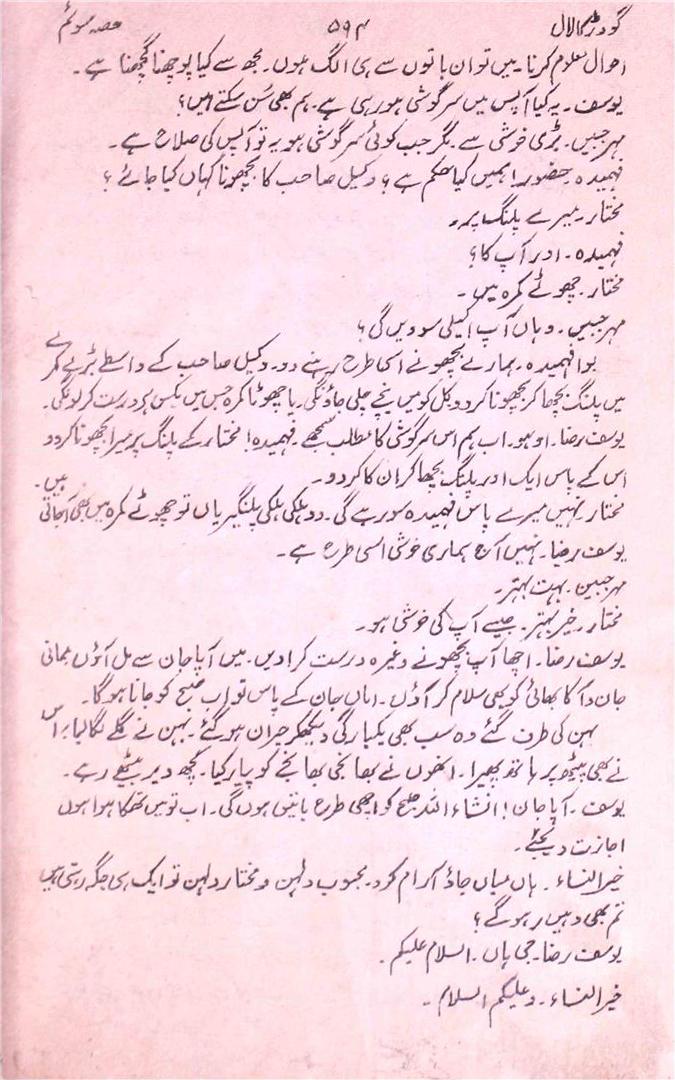 گودڑ کا لال ۵۹۴ حصہ سوئم
احوال معلوم کرنا۔ میں تو ان باتوں سے ہی الگ ہوں۔ مجھ سے کیا پوچھنا گچھنا ہے۔
یوسف۔ یہ کیا آپس میں سرگوشی ہو رہی ہے۔ ہم بھی سُن سکتے ہیں؟
مہر جبیں۔ بڑی خوشی سے۔ مگر جب کوئی سرگوشی ہو یہ تو آپس کی صلاح ہے۔
فہمیدہ۔ حضور! ہمیں کیا حکم ہے؟ وکیل صاحب کا بچھونا کہاں کیا جائے؟
مختار۔ میرے پلنگ پر۔
فہمیدہ۔ اور آپ کا؟
مختار۔ چھوٹے کمرہ میں۔
مہر جبیں۔ وہاں آپ اکیلی سوویں گی؟
بوا فہمیدہ۔ ہمارے بچھونے اسی طرح رہنے دو۔ وکیل صاحب کے واسطے بڑے کمرے
میں پلنگ بچھا کر بچھونا کر دو کل کو میں نیچے چلی جاؤنگی۔ یا چھوٹا کمرہ جس میں بکس ہیں درست کر لونگی۔
یوسف رضا۔ اوہو۔ اب ہم اس سرگوشی کا مطلب سمجھے۔ فہمیدہ! مختار کے پلنگ پر میرا بچھونا کر دو
اس کے پاس ایک اور پلنگ بچھا کر ان کا کر دو۔
مختار۔ نہیں میرے پاس فہمیدہ سو رہے گی۔ دو ہلکی ہلکی پلنگیریاں تو چھوٹے کمرہ میں بھی آجاتی ہیں۔
یوسف رضا۔ نہیں آج ہماری خوشی اسی طرح ہے۔
مہر جبین۔ بہت بہتر۔
مختار۔ خیر بہتر۔ جیسے آپ کی خوشی ہو۔
یوسف رضا۔ اچھا آپ بچھونے وغیرہ درست کرا دیں۔ میں آپا جان سے مل آؤں بھائی
جان و آکا بھائی کو بھی سلام کر آؤں۔ اماں جان کے پاس تو اب صبح کو جانا ہوگا۔
بہن کی طرف گئے وہ سب بھی یکبارگی دیکھکر حیران ہو گئے۔ بہن نے گلے لگا لیا۔ اس
نے بھی پیٹھ پر ہاتھ پھیرا۔ انھوں نے بھانجی بھانجے کو پیار کیا۔ کچھ دیر بیٹھے رہے۔
یوسف۔ آپا جان! انشاء اللہ صبح کو اچھی طرح باتیں ہوں گی۔ اب تو میں تھکا ہوا ہوں
اجازت دیجئے۔
خیر النساء۔ ہاں میاں جاؤ آرام کرو۔ محبوب دلہن و مختار دلہن تو ایک ہی جگہ رہتی ہیں
تم بھی وہیں رہو گے؟
یوسف رضا۔ جی ہاں۔ السلام علیکم۔
خیر النساء۔ وعلیکم السلام۔